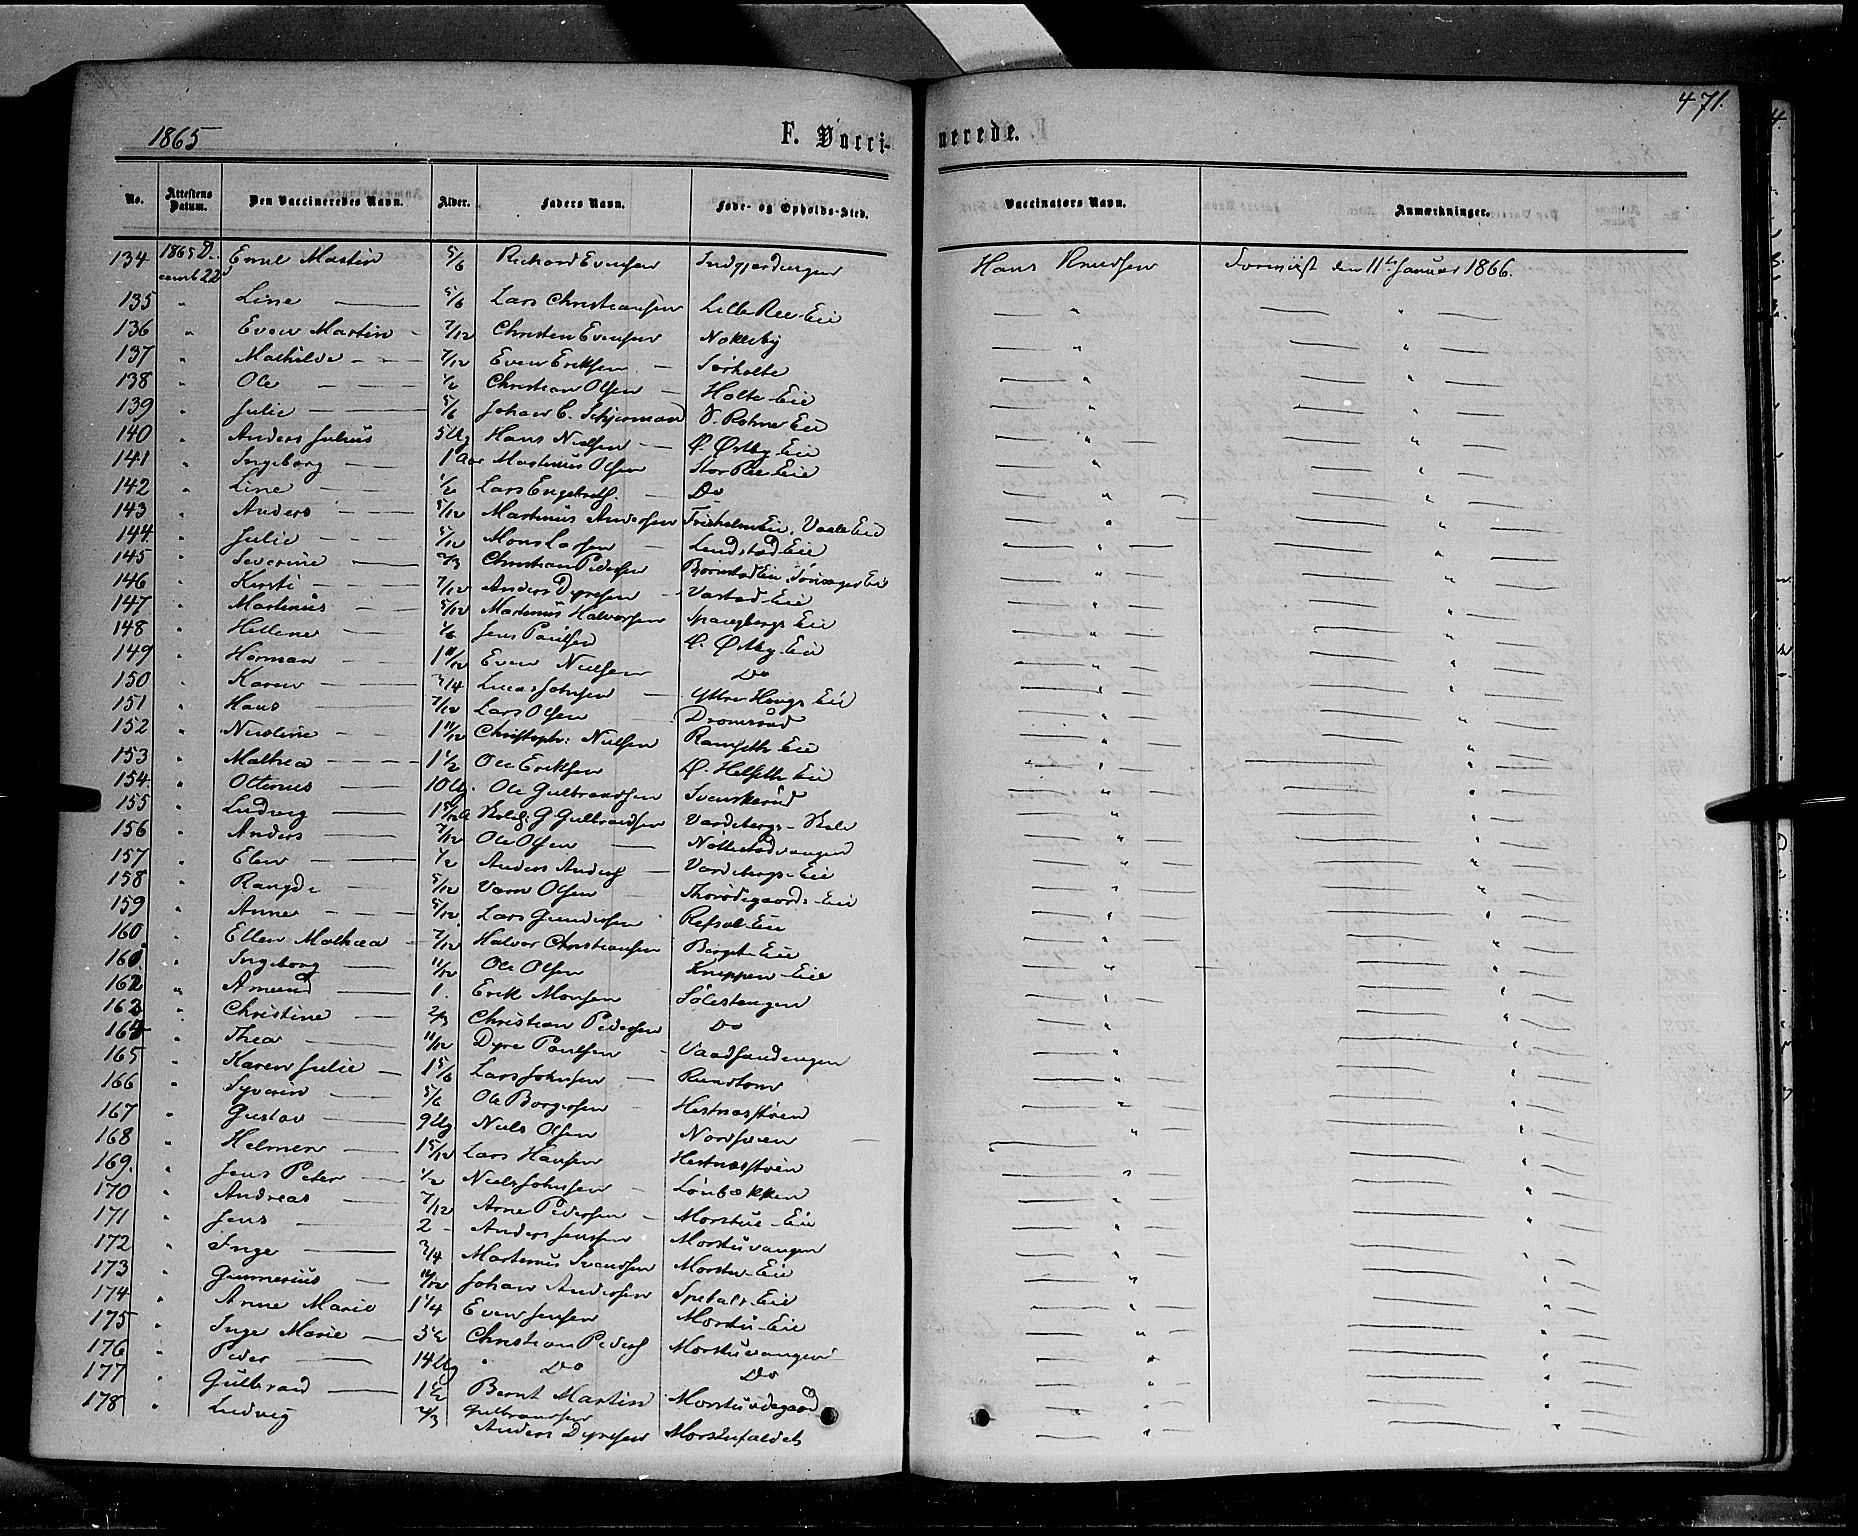 471.
1865
F. Vacci-
nerede.
No. Attestens Datum. Den Vaccineredes Navn. Alder. Faders Navn. Føde- og Opholds-Sted. Vaccinators Navn. Anmærkninger.
134 1865 De- cemb 22 Emil Martin 5/6 Richard Evensen Hans Knudsen den 11te Januar 1866.
135 " Line — 5/6 Lars Christiansen Lille Ree Eie — " — — " —
136 " Even Martin - 7/12 Christen Evensen Nokleby — " — — " —
137 " Mathilde — 7/12 Even Eriksen — Sørholte — " — — " —
138 " Ole — 1/2 Christian Olsen — Holte Eie — " — — " —
139 " Julie — 5/6 Johan C. V. Rohne Eie — " — — " —
140 " Anders Julius 5 Ug Hans Nielsen — Ø. Østby Eie — " — — " —
141 " Ingeborg — 1 Aar Martinus Olsen Stor Ree Eie — " — — " —
142 " Line — 1/2 Lars Engebrets. — Do — " — — " —
143 " Anders — 5/12 Martinus Andersen — " — — " —
144 " Julie — 5/12 Mons Larsen — Lundstad Eie — " — — " —
145 " Severine — 2/3 Christian Pedersen — " — — " —
146 " Kirsti — 7/12 Anders Dyresen — — " — — " —
147 " Martinus — 5/12 Martinus Halvorsen Spangbergs Eie — " — — " —
148 " Hellene — 1/6 Jens Paulsen Ø. Østby Eie — " — — " —
149 " Herman — 1 11/12 Even Nielsen Do — " — — " —
150 " Karen — 3/4 Lucas Johnsen — — " — — " —
151 " Hans — 7/12 Lars Olsen — — " — — " —
152 " Nicoline — 1 11/12 Christoph: Nielsen Ramseth Eie — " — — " —
153 " Mathea — 1 1/2 Ole Eriksen Ø. Helseth Eie — " — — " —
154. " Otternus — 10 Ug. Ole Gulbrandsen Svenskerud — " — — " —
155 " Ludvig — G Gulbrandsen Vardebergs - Skole — " — — " —
156 " Anders — 7/12 Ole Olsen — — " — — " —
157 " Elen — 1/2 Anders Anders — Vardebergs-Eie — " — — " —
158 " Rangdi — 5/12 Olsen — — " — — " —
159 " Anne — 5/12 Lars Gundersen Refsal Eie — " — — " —
160 " Ellen Mathea - 7/12 Halvor Christiansen Berget Eie — " — — " —
161 " Ingeborg — 11/12 Ole Olsen Kneppen Eie — " — — " —
162 " Amund — 1. Erik Monsen Sölestangen — " — — " —
163 " Christine — 2/3 Christian Pedersen Do — " — — " —
164 " Thea — 11/12 Dyre Paulsen - — " — — " —
165 " Karen Julie — 1 5/6 Lars Johnsen — Rundtom — " — — " —
166 " Syverin — 5/6 Ole Borgersen — — " — — " —
167 " Gustav — 9 Ug. Niels Olsen Nordsveen — " — — " —
168 " Helmer — 1 5/12 Lars Hansen — " — — " —
169. " Jens Peter — 1/2 Niels Johnsen — Lönbækken — " — — " —
170 " Andreas — 7/12 Arne Pedersen — Morstue - Eie — " — — " —
171 " Jens — 2 - Anders Jenssen Morstuvangen — " — — " —
172 " Inge — 3/4 Martinus Svendsen Morstu - Eie — " — — " —
173 " Gunnerius — Johan Andersen — " — — " —
174 " Anne Marie 1 1/4 Even Jensen Morstu - Eie — " — — " —
175 " Inge Marie — 3 1/2 Christian Peders Morstuevangen — " — — " —
176 " Peder — 14 Ug " Do Do — " — — " —
177 " Gulbrand — 1 1/2 Bernt Martin Gulbrandsen Morstuødegaard — " — — " —
178 " Ludvig 2/3 Anders Dyresen Morstufaldet — " — — " —